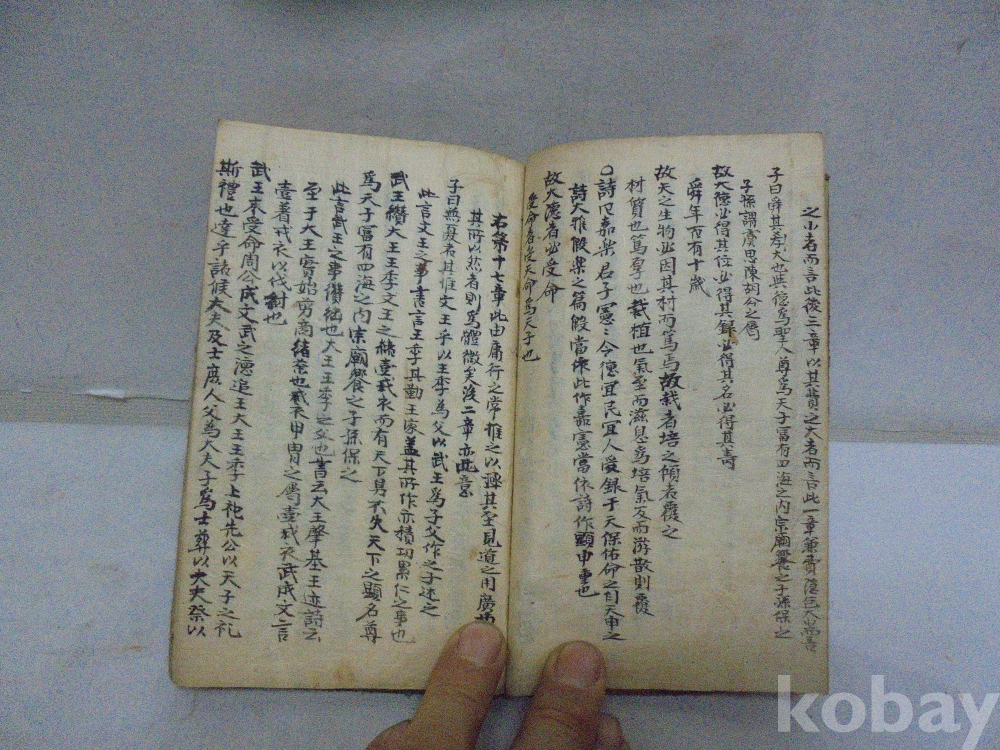 之小者而言此後三章以其費之大者而言此一章兼費隱包大小而言
子曰舜其孝大也與德爲聖人尊爲天子富有四海之内宗廟饗之子孫保之
子孫謂虞思陳胡公之屬
故大德必得其位必得其錄必得其名必得其壽
舜年百有十歲
故天之生物必因其材而篤焉故栽者培之傾者覆之
材質也篤厚也栽植也氣至而滋息爲培氣反而游散則覆
詩曰嘉樂君子憲〻令德宜民宜人受錄于天保佑命之自天申之
詩大雅假樂之篇假當依此作嘉憲當依詩作顯申重也
故大德者必受命
受命者受天命爲天子也
右第十七章此由庸行之常推之以極其至見道之用廣也
其所以然者則爲體微矣後二章亦此意
子曰無憂者其惟文王乎以王季爲父以武王爲子父作之子述之
此言文王之事書言王季其勤王家盖其所作亦積功累仁之事也
武王纘大王王季文王之緖壹戎衣而有天下身不失天下之顯名尊
爲天子富有四海之内宗廟饗之子孫保之
此言武王之事纘繼也大王王季之父也書云大王肇基王迹詩云
至于大王實始剪商緖業也戎衣甲冑之屬壹戎衣武成文言
壹着戎衣以伐紂也
武王末受命周公成文武之德追王大王王季上祀先公以天子之礼
斯禮也達乎諸侯大夫及士庶人父爲大夫子爲士葬以大夫祭以
kobay